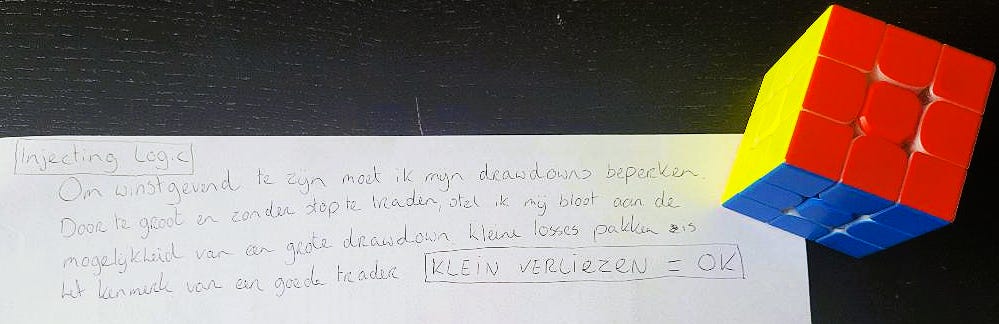 Injecting Logic
Om winstgevend te zijn moet ik mijn drawdowns beperken.
Door te groot en zonder stop te traden, stel ik mij bloot aan de
mogelijkheid van een grote drawdown. Kleine losses pakken is
het kenmerk van een goede trader KLEIN VERLIEZEN = OK